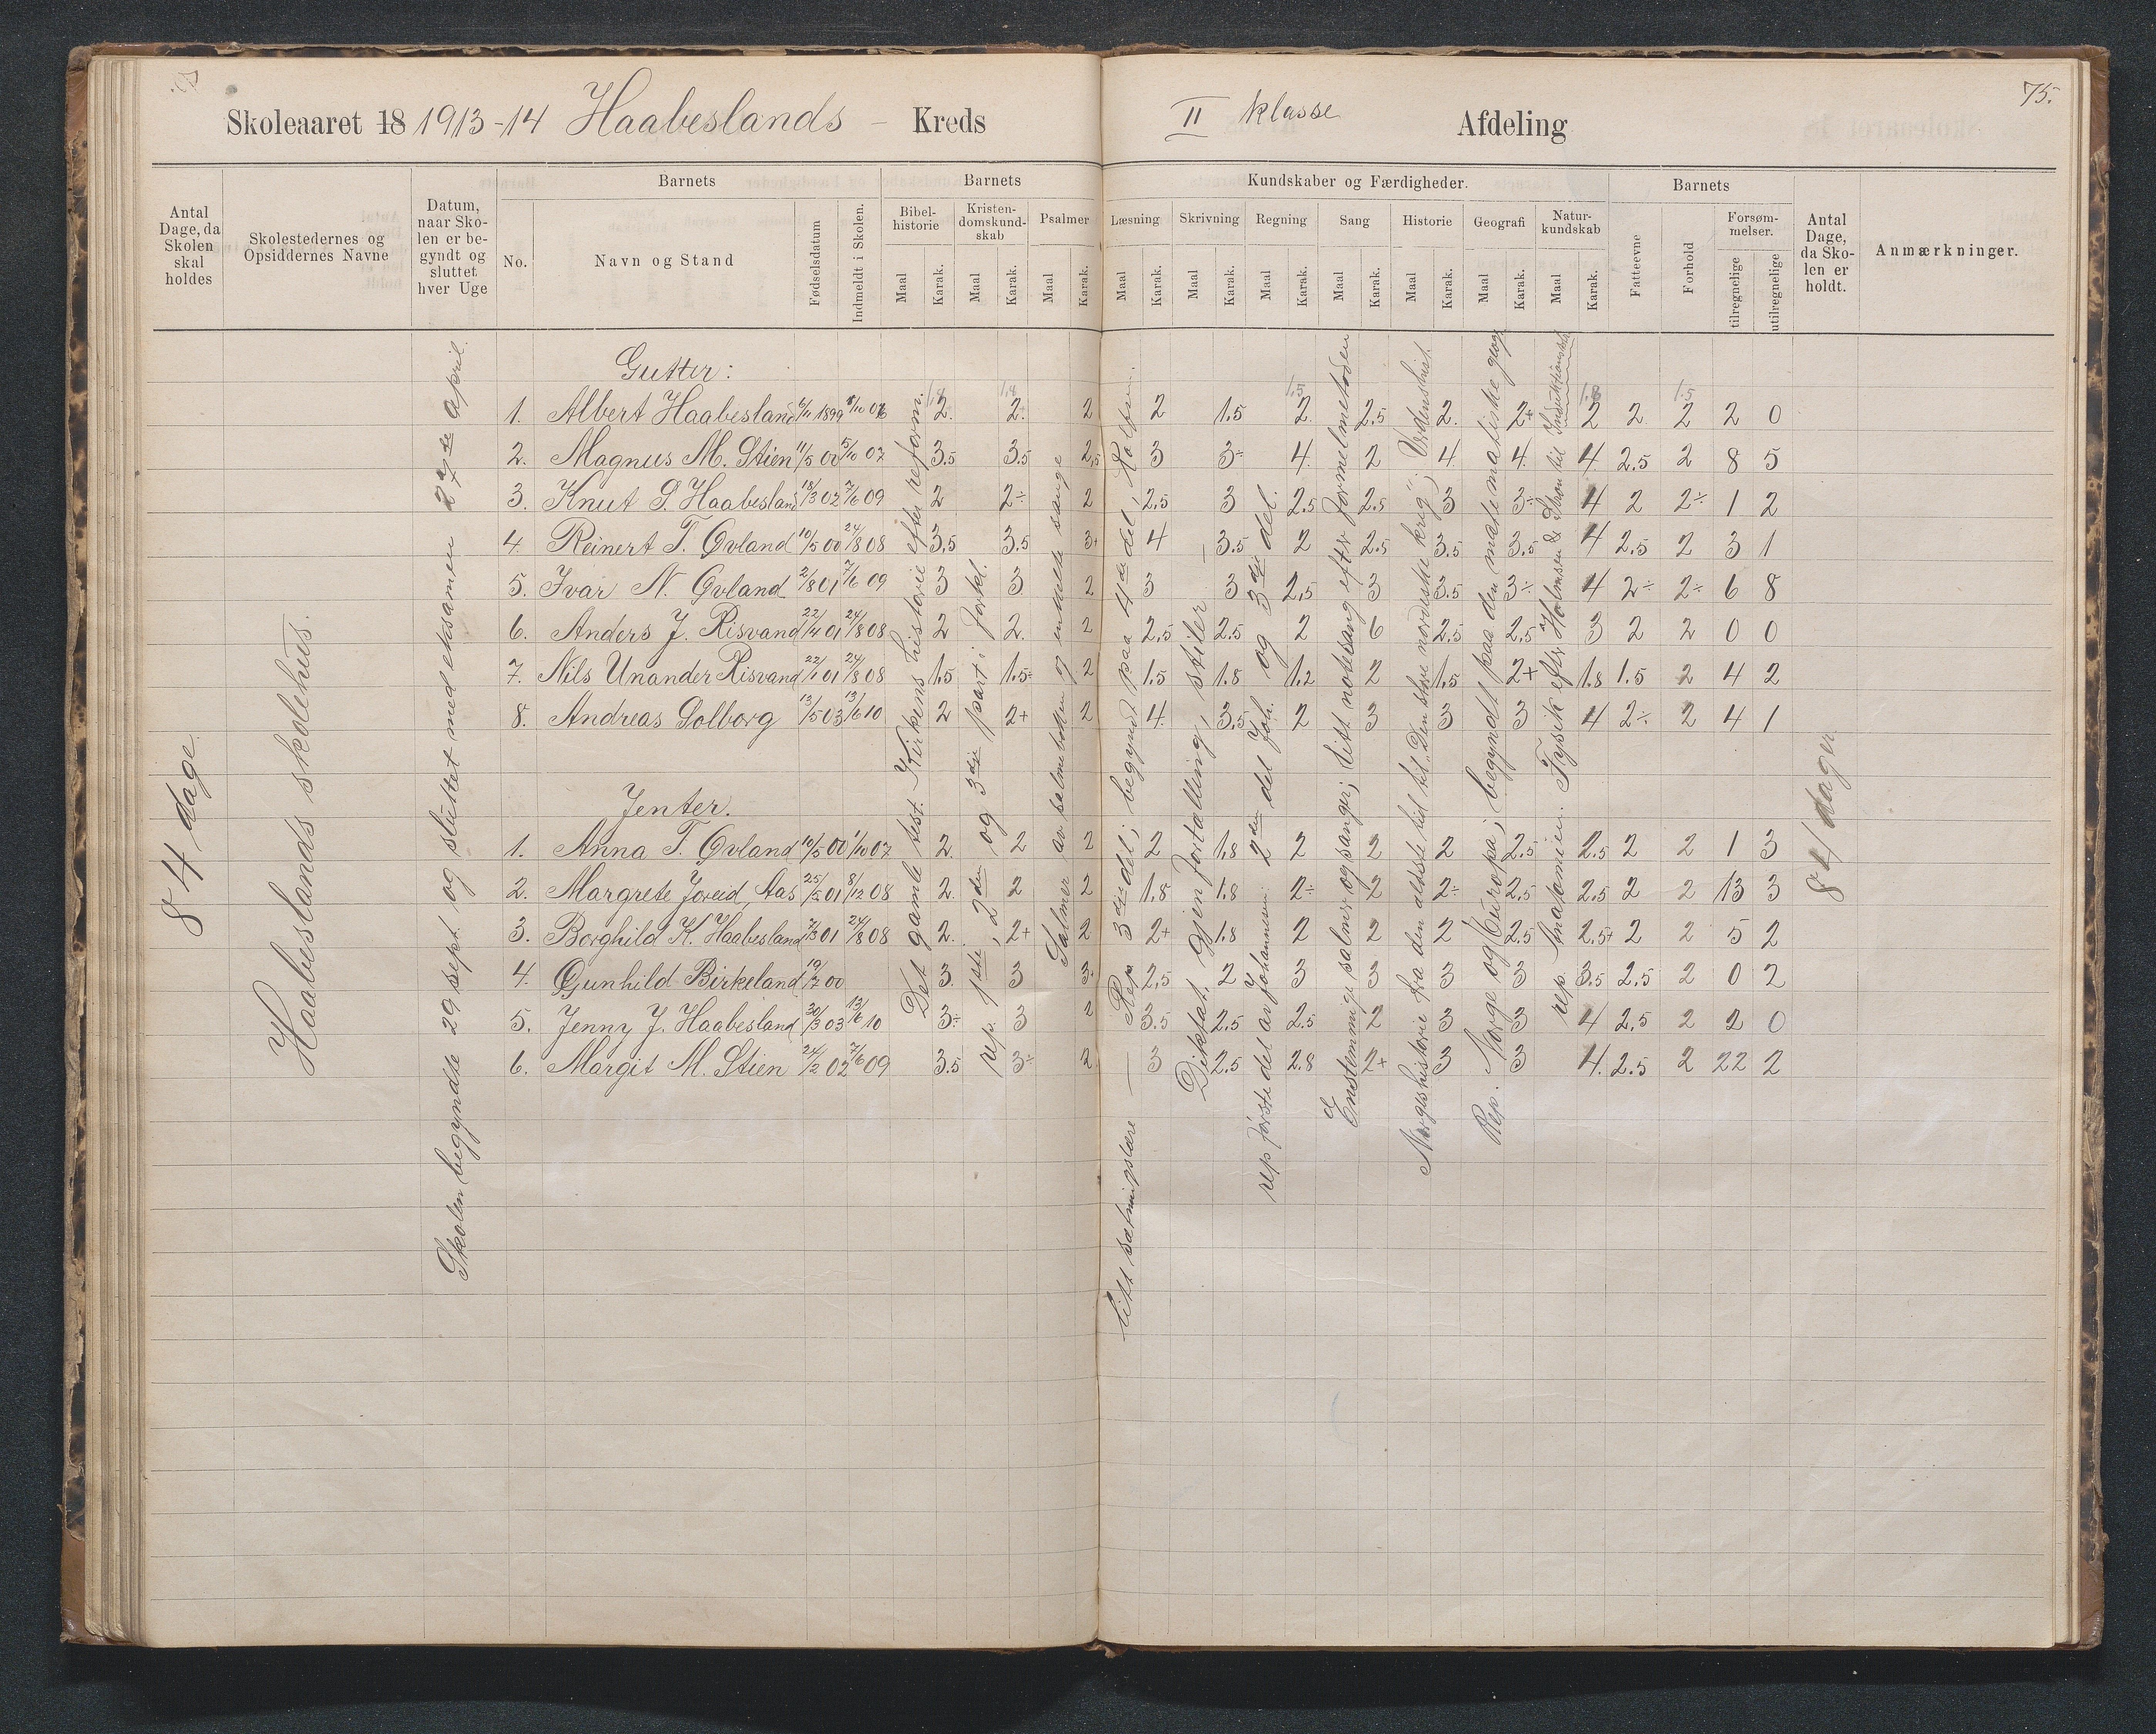 75.
Skoleaaret 18 1913-14 Haabeslands - Kreds
II klasse Afdeling
Antal Dage, da Skolen skal holdes
Skolestedernes og Opsiddernes Navne
Datum, naar Skolen er begyndt og sluttet hver Uge
Barnets
No.
Navn og Stand
Fødselsdatum
Indmeldt i Skolen.
Barnets
Bibelhistorie
Kristendomskundskab
Psalmer
Maal Karak. Maal Karak. Maal Karak.
Kundskaber og Færdigheder.
Læsning Skrivning Regning Sang Historie Geografi Naturkundskab
Maal Karak. Maal Karak. Maal Karak. Maal Karak. Maal Karak. Maal Karak. Maal Karak.
Barnets
Fatteevne
Forhold
Forsømmelser.
tilregnelige
utilregnelige
Antal Dage, da Skolen er holdt.
Anmærkninger.
84 dage.
Haabeslands skolehus.
Skolen begyndte 29 sept. og sluttet med eksamen 27de april.
Gutter:
1. Albert Haabesland 6/11 1899 2. 2. 2 2 1.5 2. 2.5 2. 2+ 2 2 2 2 0
2. Magnus M. Stien 11/5 00 5/10 07 3.5 3.5 2.5 3 3÷ 4. 2 4. 4. 4 2.5 2 8 5
3. Knut S. Haabesland 18/3 02 7/6 09 2 2÷ 2 2.5 3 2.5 2.5 3 3÷ 4 2 2÷ 1 2
4. Reinert T. Øvland 10/5 00 24/8 08 3.5 3.5 3+ 4 3.5 2 2.5 3.5 3.5 4 2.5 2 3 1
5. Ivar N. Øvland 2/8 01 7/6 09 3 3 2 3 3 2.5 3 3.5 3÷ 4 2÷ 2÷ 6 8
6. Anders J. Risvand 22/4 01 24/8 08 2 2. 2 2.5 2.5 2 6 2.5 2.5 3 2 2 0 0
7. Nils Unander Risvand 22/1 01 24/8 08 1.5 1.5÷ 2 1.5 1.8 1.2 2 1.5 2+ 1.8 1.5 2 4 2
8. Andreas Solborg 13/5 03 13/6 10 2 2+ 2 4. 3.5 2 3 3 3 4 2÷ 2 4 1
Jenter.
1. Anna T. Øvland 10/5 00 1/10 07 2. 2 2 2 1.8 2 2 2 2.5 2.5 2 2 1 3
2. Margrete Joreid, Aas 25/5 01 8/12 08 2. 2 2 1.8 1.8 2÷ 2 2÷ 2.5 2.5 2 2 13 3
3. Borghild K. Haabesland 7/3 01 24/8 08 2. 2+ 2 2+ 1.8 2 2 2 2.5 2.5+ 2 2 5 2
4. Gunhild Birkeland 19/7 00 3. 3 3. 2.5 2 3 3 3 3 3.5 2.5 2 0 2
5. Jenny J. Haabesland 30/3 03 13/6 10 3÷ 3 2 3.5 2.5 2.5 2 3 3 4 2.5 2 2 0
6. Margit M. Stien 24/2 02 7/6 09 3.5 3÷ 2 3 2.5 2.8 2+ 3 3 4. 2.5 2 22 2
Det gamle test. Kirkens historie efter reform.
rep. 1ste, 2den og 3dje part i forkl.
Salmer av salmeboken og enkelte sange
Rep 3dje del; begyndt paa 4de del,
litt sætningslære
Diktat, gjenfortælling, stiler
rep første del av Johannesen 2den del Joh. og 3dje del.
Enstemmige salmer og sanger; litt notesang efter formelmetoden
Norgeshistorie fra den ældste tid til "Den store nordiske krig"; Verdenshist.
Rep. Norge og Europa; begyndt paa den matematiske geogr.
rep. Anatomien. Fysik efter Holmsen &
84 dager.